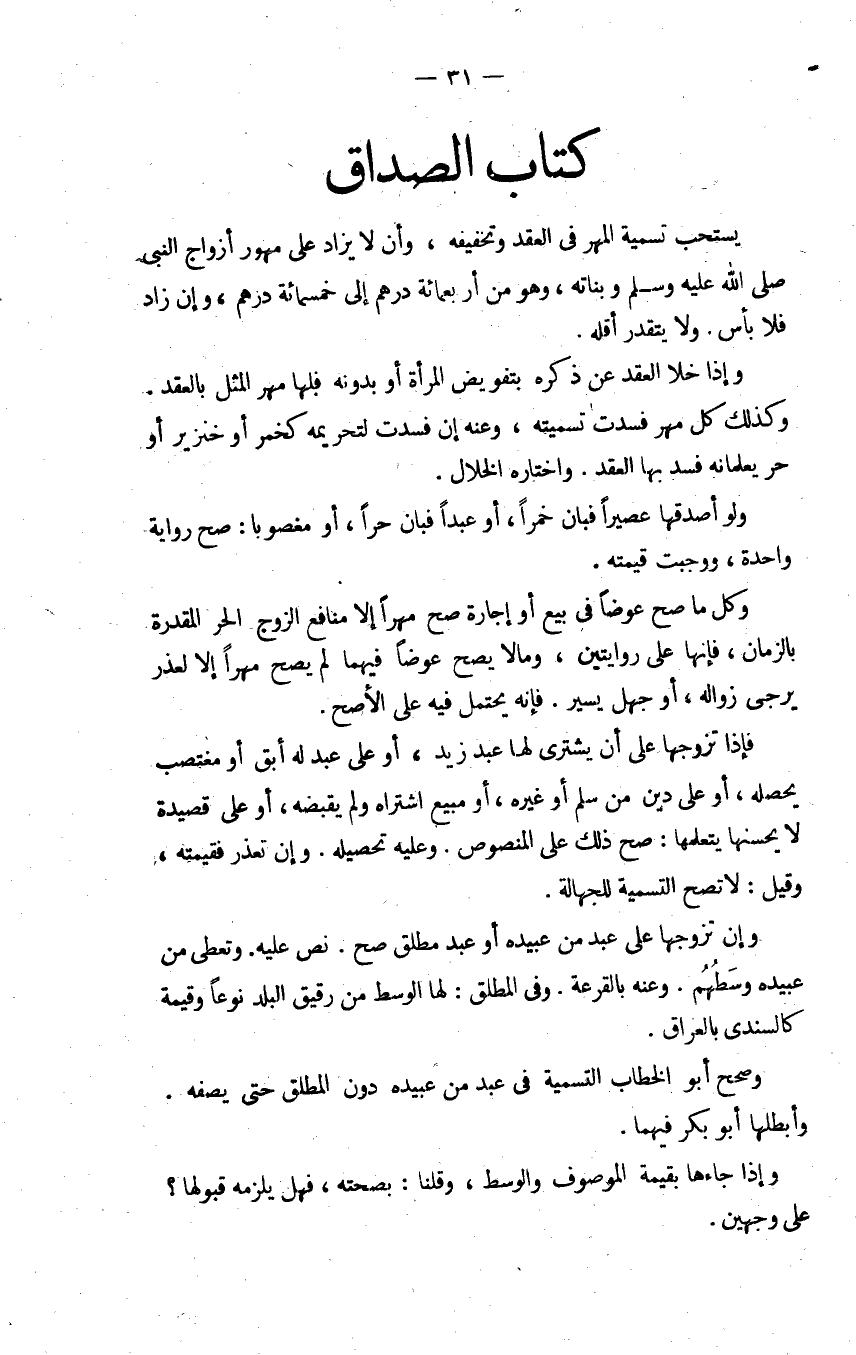 — ٣١ —
كتاب الصداق
يستحب تسمية المهر فى العقد وتخفيفه ، وأن لا يزاد على مهور أزواج النبى
صلى الله عليه وسلم وبناته ، وهو من أربعمائة درهم إلى خمسمائة درهم ، وإن زاد
فلا بأس . ولا يتقدر أقله .
وإذا خلا العقد عن ذكره بتفويض المرأة أو بدونه فلها مهر المثل بالعقد .
وكذلك كل مهر فسدت تسميته ، وعنه إن فسدت لتحريمه كخمر أو خنزير أو
حر يعلمانه فسد بها العقد . واختاره الخلال .
ولو أصدقها عصيراً فبان خمراً ، أو عبداً فبان حراً ، أو مغصوبا : صح رواية
واحدة ، ووجبت قيمته .
وكل ما صح عوضاً فى بيع أو إجارة صح مهراً إلا منافع الزوج الحر المقدرة
بالزمان ، فإنها على روايتين ، ومالا يصح عوضاً فيهما لم يصح مهراً إلا لعذر
يرجى زواله ، أو جهل يسير . فإنه يحتمل فيه على الأصح .
فإذا تزوجها على أن يشترى لها عبد زيد ، أو على عبد له أبق أو مغتصب
يحصله ، أو على دين من سلم أو غيره ، أو مبيع اشتراه ولم يقبضه ، أو على قصيدة
لا يحسنها يتعلمها : صح ذلك على المنصوص . وعليه تحصيله . وإن تعذر فقيمته ،
وقيل : لا تصح التسمية للجهالة .
وإن تزوجها على عبد من عبيده أو عبد مطلق صح . نص عليه . وتعطى من
عبيده وسَطُهُم . وعنه بالقرعة . وفى المطلق : لها الوسط من رقيق البلد نوعاً وقيمة
كالسندى بالعراق .
وصحح أبو الخطاب التسمية فى عبد من عبيده دون المطلق حتى يصفه .
وأبطلها أبو بكر فيهما .
وإذا جاءها بقيمة الموصوف والوسط ، وقلنا : بصحته ، فهل يلزمه قبولها ؟
على وجهين .